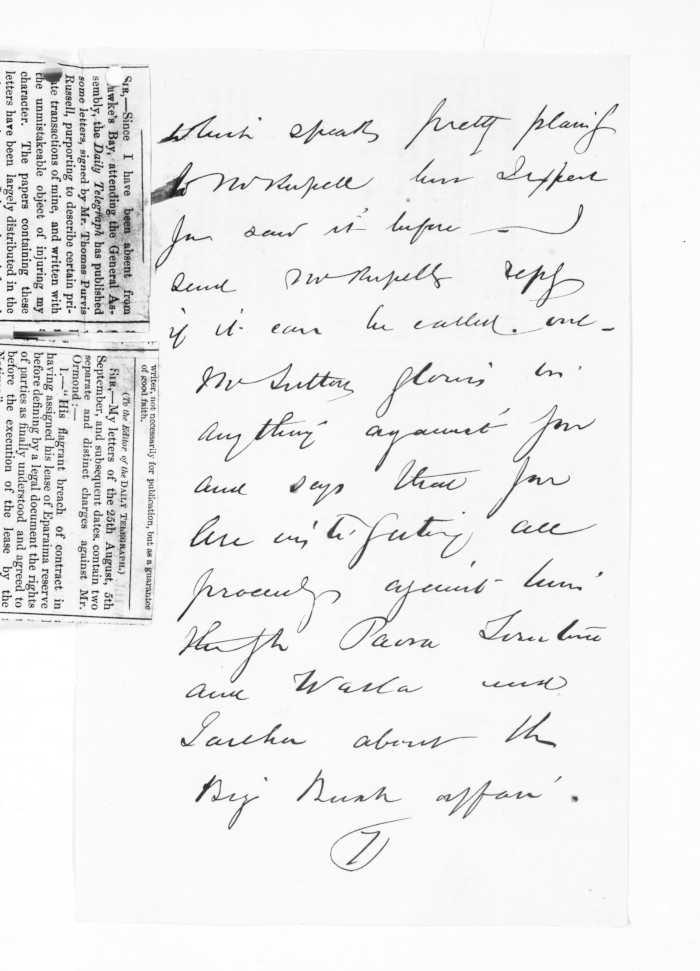 which speaks pretty plainly
to Mr Russell but I expect
you saw it before — I
send Mr Russell's reply
if it can be called one —
Mr Sutton glories in
anything against you
and says that you
are instigating all
proceedings against him
through Paora
and Waaka and
about the
Big Bush affair.
7
SIR,—Since I have been absent from
Hawke's Bay, attending the General As-
sembly, the Daily Telegraph has published
some letters, signed by Mr. Thomas Purvis
Russell, purporting to describe certain pri-
vate transactions of mine, and written with
the unmistakeable object of injuring my
character. The papers containing these
letters have been largely distributed in the
writer, not necessarily for publication, but as a guarantee
of good faith.
(To the Editor of the DAILY TELEGRAPH.)
SIR,—My letters of the 25th August, 5th
September, and subsequent dates, contain two
separate and distinct charges against Mr.
Ormond:—
1.—"His flagrant breach of contract in
having assigned his lease of Eparaima reserve
before defining by a legal document the rights
of parties as finally understood and agreed to
before the execution of the lease by the